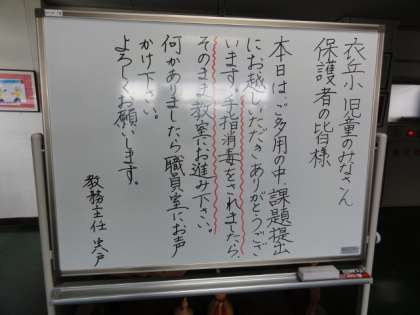 衣丘小 児童のみなさん
保護者の皆様
本日は、ご多用の中、課題提出
にお越しいただきありがとうござ
います。手指消毒をされましたら、
そのまま教室にお進み下さい。
何かありましたら職員室にお声
かけ下さい。
よろしくお願いします。
教務主任 宍戸